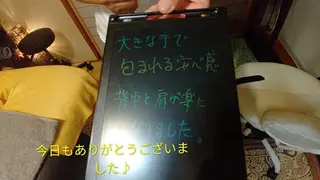 大きな手で
包まれる安心感
背中と肩が楽に
なりました。
今日もありがとうございま
した♪